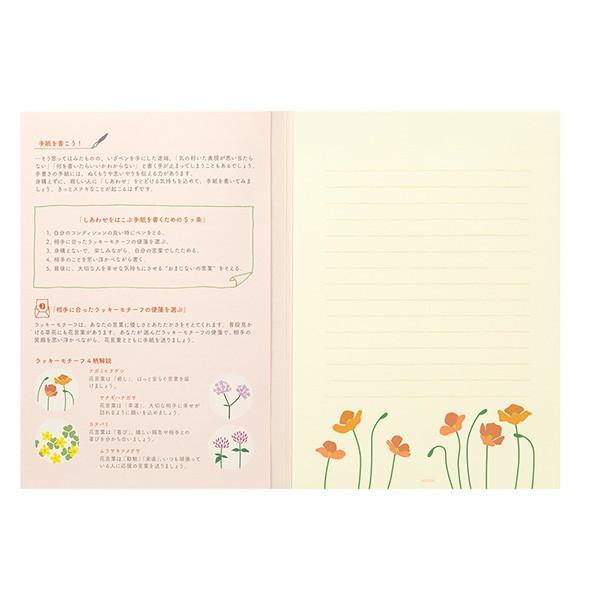 手紙を書こう！
…そう思ってはみたものの、いざペンを手にした途端、「気の利いた表現が思い当たら
ない」「何を書いたらいいかわからない」と書く手が止まってしまうこともあるでしょう。
手書きの手紙には、ぬくもりや思いやりを伝える力があります。
身構えずに、親しい人に「しあわせ」をとどける気持ちを込めて、手紙を書いてみま
しょう。きっとステキなことが起こるはずです。
「しあわせをはこぶ手紙を書くための5ヶ条」
1. 自分のコンディションの良い時にペンをとる。
2. 相手に合ったラッキーモチーフの便箋を選ぶ。
3. 身構えないで、楽しみながら、自分の言葉でしたためる。
4. 相手のことを思い浮かべながら書く。
5. 最後に、大切な人を幸せな気持ちにさせる“おまじないの言葉”をそえる。
「相手に合ったラッキーモチーフの便箋を選ぶ」
ラッキーモチーフは、あなたの言葉に優しさとあたたかさをそえてくれます。普段見か
ける草花にも花言葉があります。あなたが選んだラッキーモチーフの便箋で、相手の
笑顔を思い浮かべながら、花言葉とともに手紙を送りましょう。
ラッキーモチーフ4柄解説
ナガミヒナゲシ
花言葉は「癒し」。ほっと安らぐ言葉を届
けましょう。
ヤナギハナガサ
花言葉は「幸運」。大切な相手に幸せが
訪れるように願いを込めましょう。
カタバミ
花言葉は「喜び」。嬉しい報告や相手との
喜びを分かち合いましょう。
ムラサキツメクサ
花言葉は「勤勉」「実直」。いつも頑張って
いる人に応援の言葉を送りましょう。